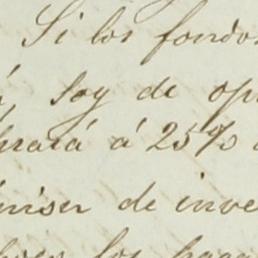 Si los fondos
á, soy de op
brará á 25%
miser de inve
los haga